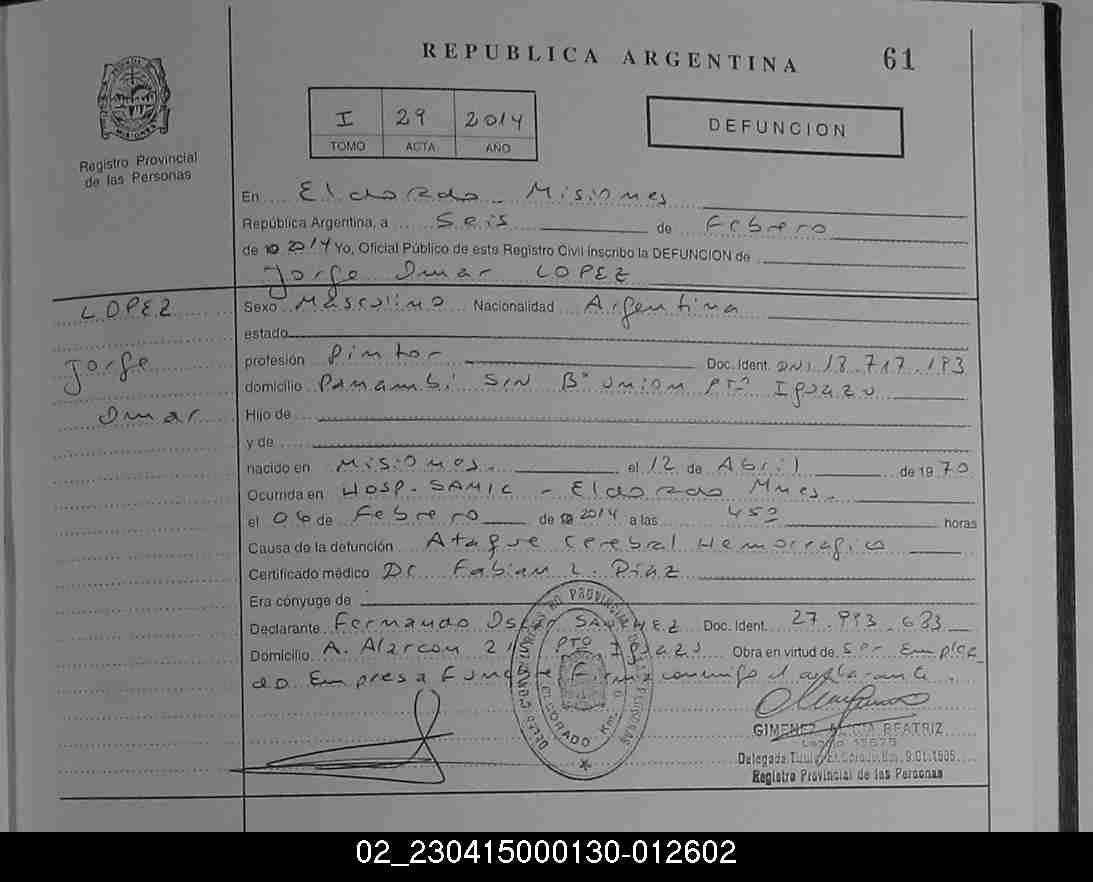 REPUBLICA ARGENTINA 61
Registro Provincial
de las Personas
I 29 2014
TOMO ACTA AÑO
DEFUNCION
En Eldorado - Misiones
República Argentina, a Seis de Febrero
de 2014 Yo, Oficial Público de este Registro Civil inscribo la DEFUNCION de
Jorge Omar LOPEZ
LOPEZ
Jorge
Omar
Sexo Masculino Nacionalidad Argentina
estado
profesión Pintor Doc. Ident. DNI 18.717.193
domicilio Panambí S/N Bº Union Ptº Iguazu
Hijo de
y de
nacido en Misiones. el 12 de Abril de 1970
Ocurrida en Hosp. SAMIC - Eldorado Mnes.
el 06 de Febrero de 2014 a las 450 horas
Causa de la defunción Ataque cerebral Hemorragico
Certificado médico Dr. Fabian L. Diaz
Era cónyuge de
Declarante Fernando SANCHEZ Doc. Ident. 27.993.683
Domicilio A. Alarcon PTO Iguazu Obra en virtud de ser Emplea
do Empresa Firma conmigo el declarante.
REGISTRO PROVINCIAL DE LAS PERSONAS
ELDORADO Km.
GIMENEZ BEATRIZ
Delegada Titular
Registro Provincial de las Personas
02_230415000130-012602